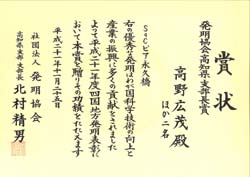 賞状
発明協会高知県支部長賞
高野広茂殿
ほか二名
SqCピア永久橋
右の優秀な発明はわが国科学技術の向上と
産業の振興に多くの貢献をされました
よって平成二十一年度四国地方発明表彰に
本賞を贈りその功績をたたえます
平成二十一年十一月二十五日
社団法人 発明協会
高知県支部 支部長 北村精男